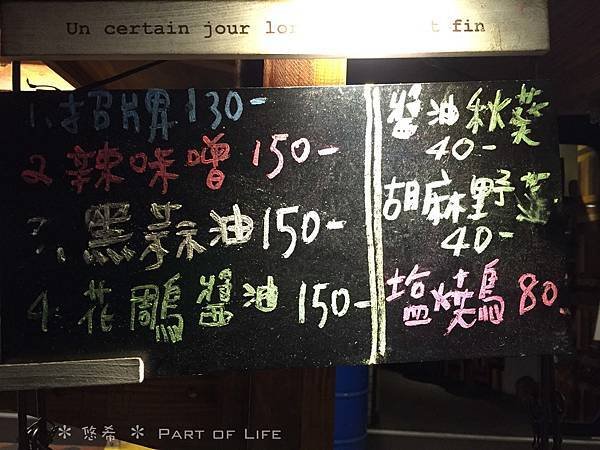 Un certain jour
t fin
1. 招牌 130-
2. 辣味噌 150-
3. 黑蒜油 150-
4. 花雕醬油 150-
醬油秋葵
40-
胡麻野蓮
40-
塩燒鳥 80-
＊ 悠希 ＊ Part of Life